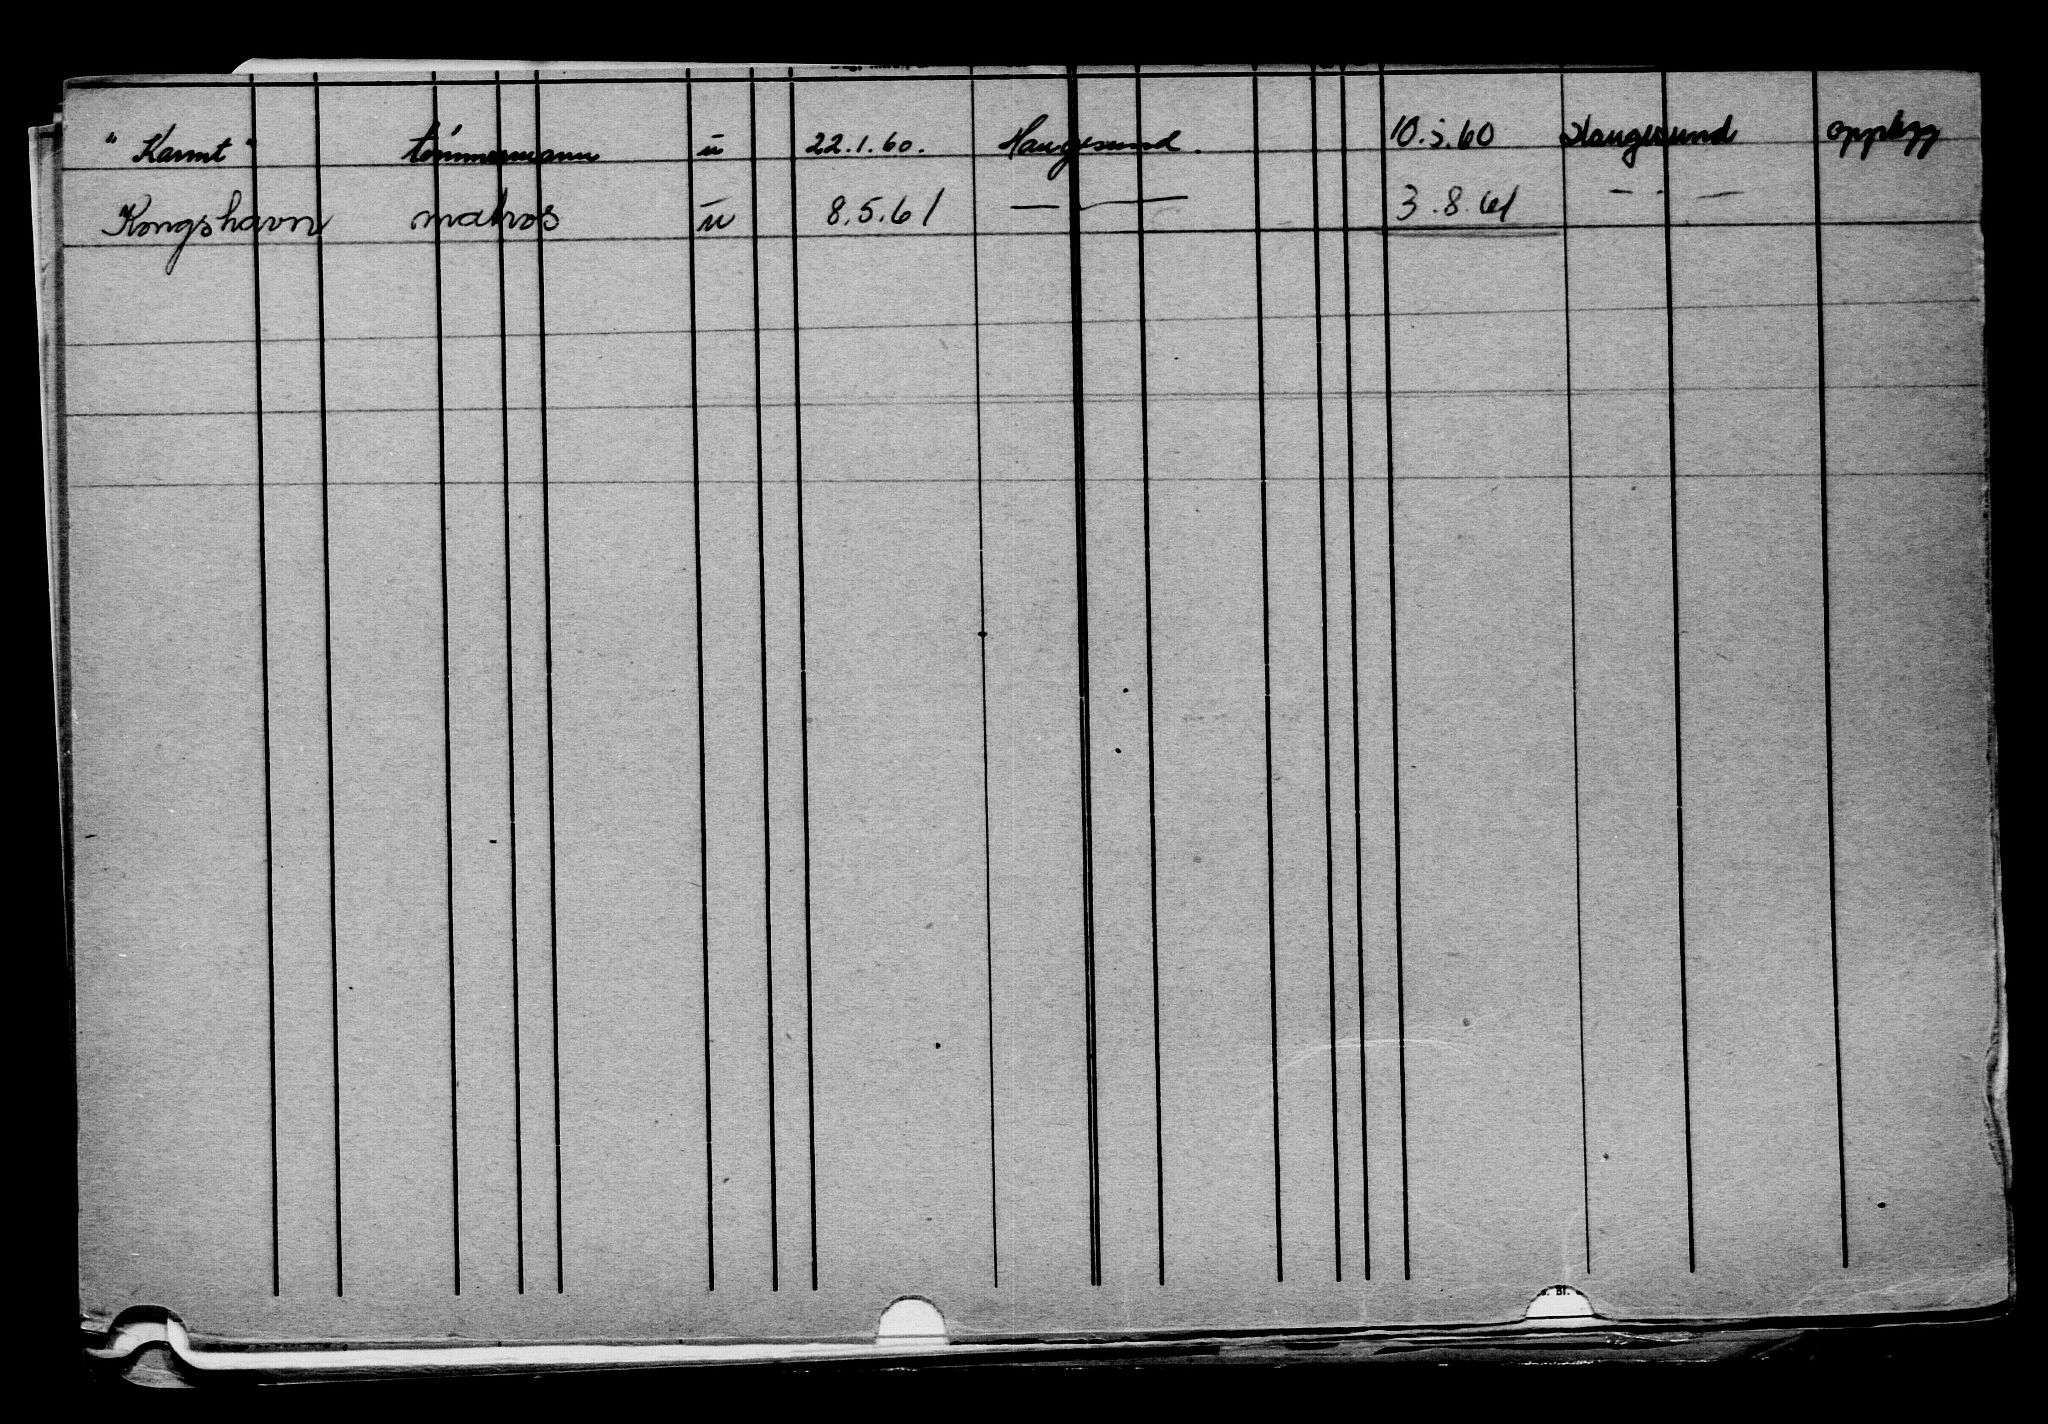 "Karmt" tømmermann u 22.1.60. Haugesund. 10.5.60 Haugesund opplegg
Kongshavn matros u 8.5.61 — — 3.8.61 — —